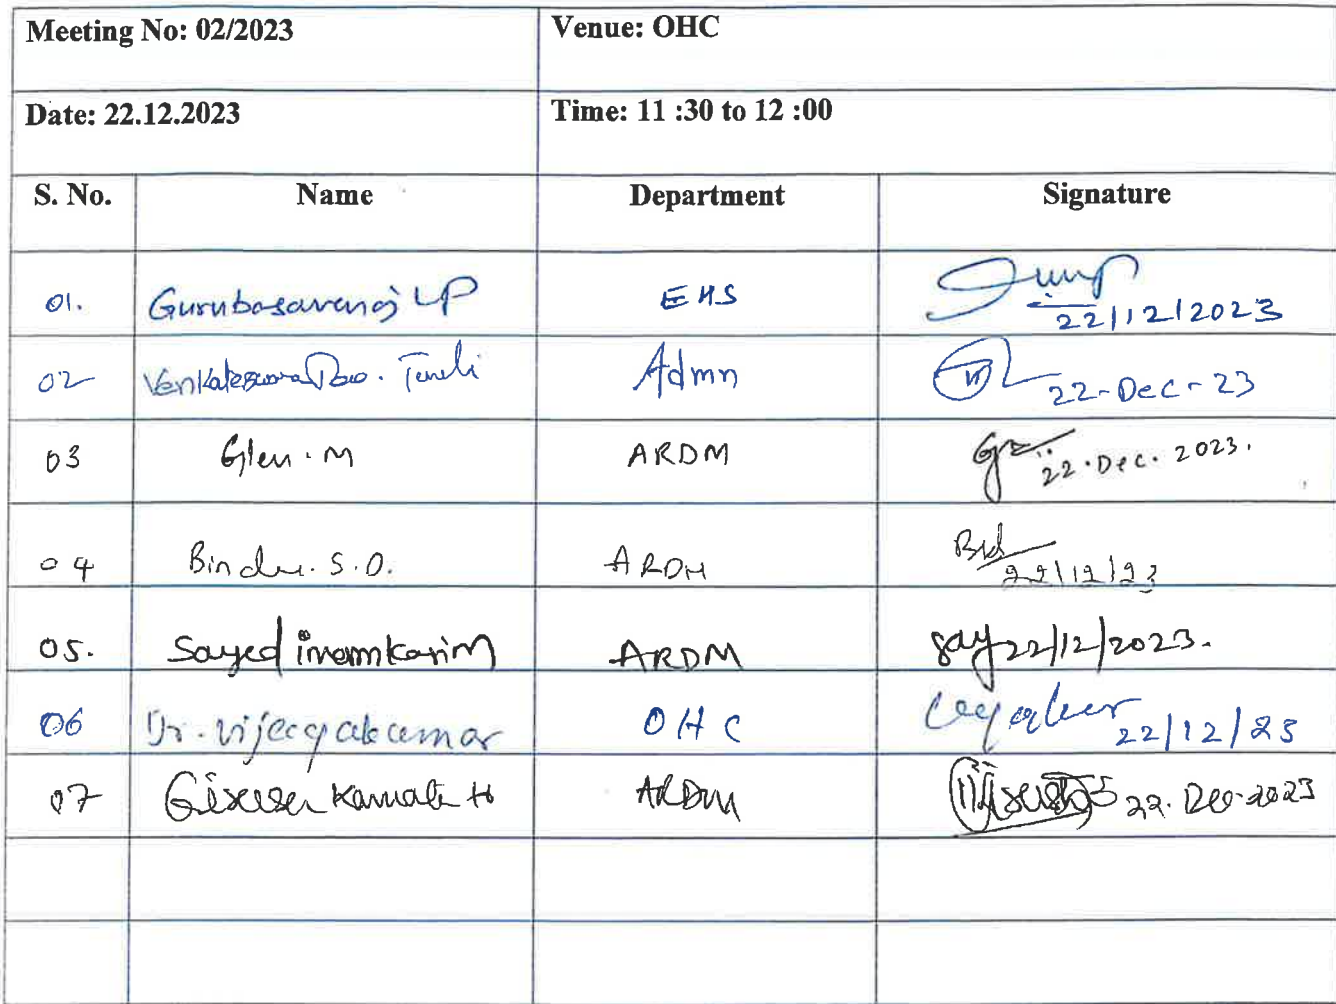 Meeting No: 02/2023 Venue: OHC
Date: 22.12.2023 Time: 11 :30 to 12 :00
S. No. Name Department Signature
01. Gurubasavaraj LP EHS 22/12/2023
02 Venkateswara Rao. Admn 22-Dec-23
03 Glen. M ARDM 22.Dec.2023.
04 Bindu. S.O. ARDM 22/12/23
05. Sayed imamkarim ARDM say 22/12/2023.
06 Dr. Vijayakumar OHC 22/12/23
07 ARDM 22.Dec.2023